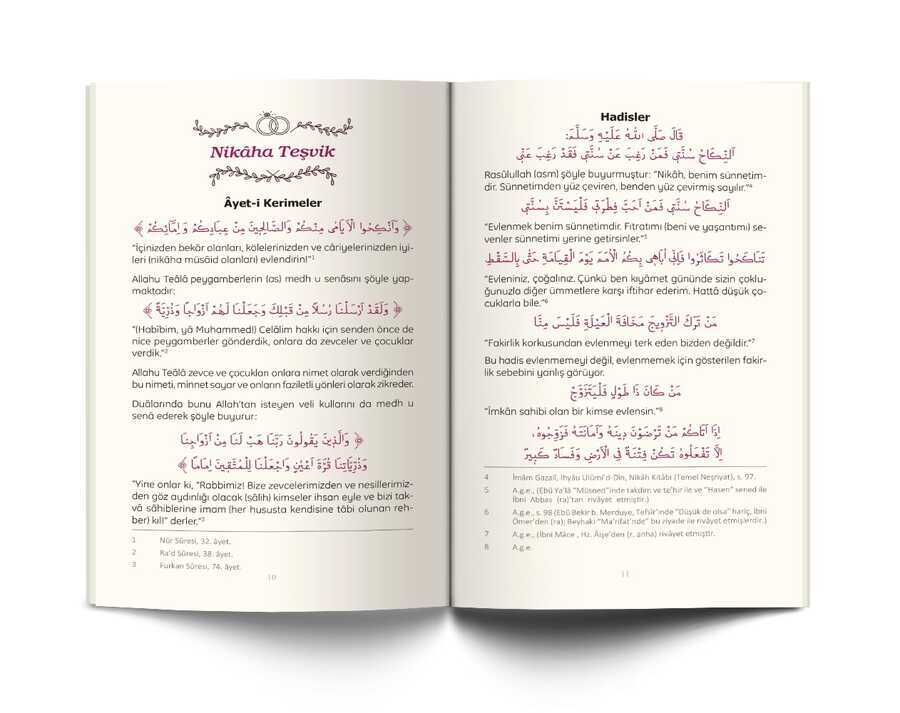 Nikâha Teşvik
Âyet-i Kerimeler
﴿ وَاَنْكِحُوا الْاَيَامٰى مِنْكُمْ وَالصَّالِحٖينَ مِنْ عِبَادِكُمْ وَاِمَٓائِكُمْ ﴾
“İçinizden bekâr olanları, kölelerinizden ve câriyelerinizden iyi-
leri (nikâha müsâid olanları) evlendirin!”1
Allahu Teâlâ peygamberlerin (as) medh u senâsını şöyle yap-
maktadır:
﴿ وَلَقَدْ اَرْسَلْنَا رُسُلًا مِنْ قَبْلِكَ وَجَعَلْنَا لَهُمْ اَزْوَاجًا وَذُرِّيَّةً ﴾
“(Habîbim, yâ Muhammed!) Celâlim hakkı için senden önce de
nice peygamberler gönderdik, onlara da zevceler ve çocuklar
verdik.”2
Allahu Teâlâ zevce ve çocukları onlara nimet olarak verdiğinden
bu nimeti, minnet sayar ve onların faziletli yönleri olarak zikreder.
Duâlarında bunu Allah’tan isteyen veli kullarını da medh u
senâ ederek şöyle buyurur:
﴿ وَالَّذٖينَ يَقُولُونَ رَبَّنَا هَبْ لَنَا مِنْ اَزْوَاجِنَا
وَذُرِّيَّاتِنَا قُرَّةَ اَعْيُنٍ وَاجْعَلْنَا لِلْمُتَّقٖينَ اِمَامًا ﴾
“Yine onlar ki, “Rabbimiz! Bize zevcelerimizden ve nesillerimiz-
den göz aydınlığı olacak (sâlih) kimseler ihsan eyle ve bizi tak-
vâ sâhiblerine imam (her hususta kendisine tâbi olunan reh-
ber) kıl!” derler.”3
1 Nûr Sûresi, 32. âyet.
2 Ra’d Sûresi, 38. âyet.
3 Furkan Sûresi, 74. âyet.
10
Hadisler
قَالَ صَلَّى اللّٰهُ عَلَيْهِ وَسَلَّمَ:
اَلنِّكَاحُ سُنَّتٖي فَمَنْ رَغِبَ عَنْ سُنَّتٖي فَقَدْ رَغِبَ عَنّٖي
Rasûlullah (asm) şöyle buyurmuştur: “Nikâh, benim sünnetim-
dir. Sünnetimden yüz çeviren, benden yüz çevirmiş sayılır.”4
اَلنِّكَاحُ سُنَّتٖي فَمَنْ اَحَبَّ فِطْرَتٖي فَلْيَسْتَنَّ بِسُنَّتٖي
“Evlenmek benim sünnetimdir. Fıtratımı (beni ve yaşantımı) se-
venler sünnetimi yerine getirsinler.”5
تَنَاكَحُوا تَكَاثَرُوا فَاِنّٖي اُبَاهٖي بِكُمُ الْاُمَمَ يَوْمَ الْقِيَامَةِ حَتّٰى بِالسِّقْطِ
“Evleniniz, çoğalınız. Çünkü ben kıyâmet gününde sizin çoklu-
ğunuzla diğer ümmetlere karşı iftihar ederim. Hattâ düşük ço-
cuklarla bile.”6
مَنْ تَرَكَ التَّزْوِيجَ مَخَافَةَ الْعَيْلَةِ فَلَيْسَ مِنَّا
“Fakirlik korkusundan evlenmeyi terk eden bizden değildir.”7
Bu hadis evlenmemeyi değil, evlenmemek için gösterilen fakir-
lik sebebini yanlış görüyor.
مَنْ كَانَ ذَا طَوْلٍ فَلْيَتَزَوَّجْ
“İmkân sahibi olan bir kimse evlensin.”8
اِذَا اَتَاكُمْ مَنْ تَرْضَوْنَ دٖينَهُ وَاَمَانَتَهُ فَزَوِّجُوهُ،
اِلَّا تَفْعَلُوهُ تَكُنْ فِتْنَةٌ فِي الْاَرْضِ وَفَسَادٌ كَبٖيرٌ
4 İmâm Gazalî, İhyâu Ulûmi’d-Din, Nikâh Kitâbı (Temel Neşriyat), s. 97.
5 A.g.e., (Ebû Ya’lâ “Müsned”inde takdim ve te’hir ile ve “Hasen” sened ile
İbni Abbas (ra)’tan rivâyet etmiştir.)
6 A.g.e., s. 98 (Ebû Bekir b. Merduye, Tefsîr’inde “Düşük de olsa” hariç, İbni
Ömer’den (ra); Beyhakî “Ma’rifat’ınde” bu ziyade ile rivâyet etmişlerdir.)
7 A.g.e., (İbni Mâce , Hz. Âişe’den (r. anha) rivâyet etmiştir.
8 A.g.e.
11